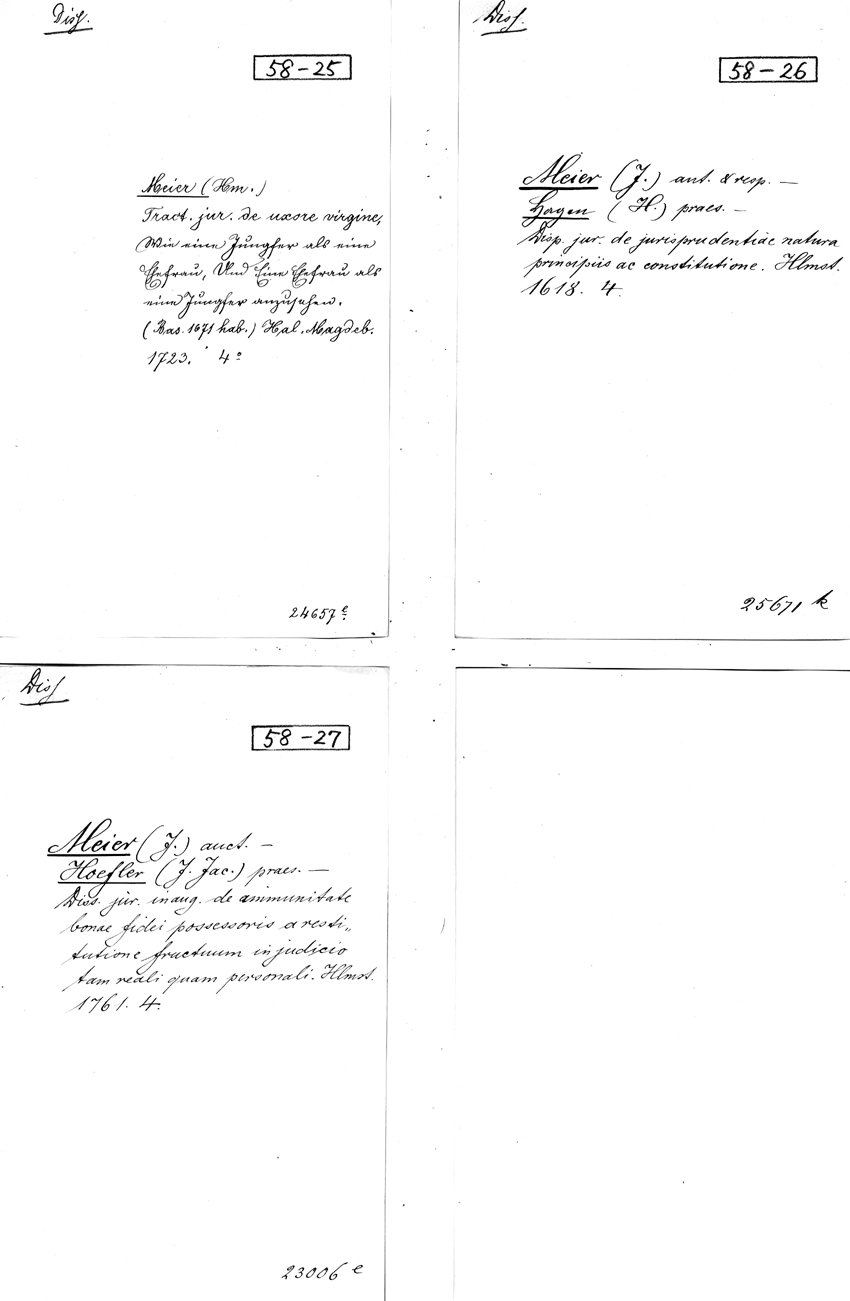 Diss.
58-25
Meier (Hm.)
Tract. jur. de uxore virgine,
Wie eine Jungfer als eine
Ehefrau, Und Eine Ehefrau als
eine Jungfer anzusehen.
(Bas. 1671 hab.) Hal. Magdeb.
1723. 4°
24657 e.
Diss.
58-26
Meier (J.) aut. & resp. —
Hagen (H.) praes. —
Disp. jur. de jurisprudentiae natura
principiis ac constitutione. Hlmst.
1618. 4.
25671 k
Diss
58-27
Meier (J.) auct. —
Hoefler (J. Jac.) praes. —
Diss. jur. inaug. de immunitate
bonae fidei possessoris a resti„
tutione fructuum in judicio
tam reali quam personali. Hlmst.
1761. 4.
23006 e